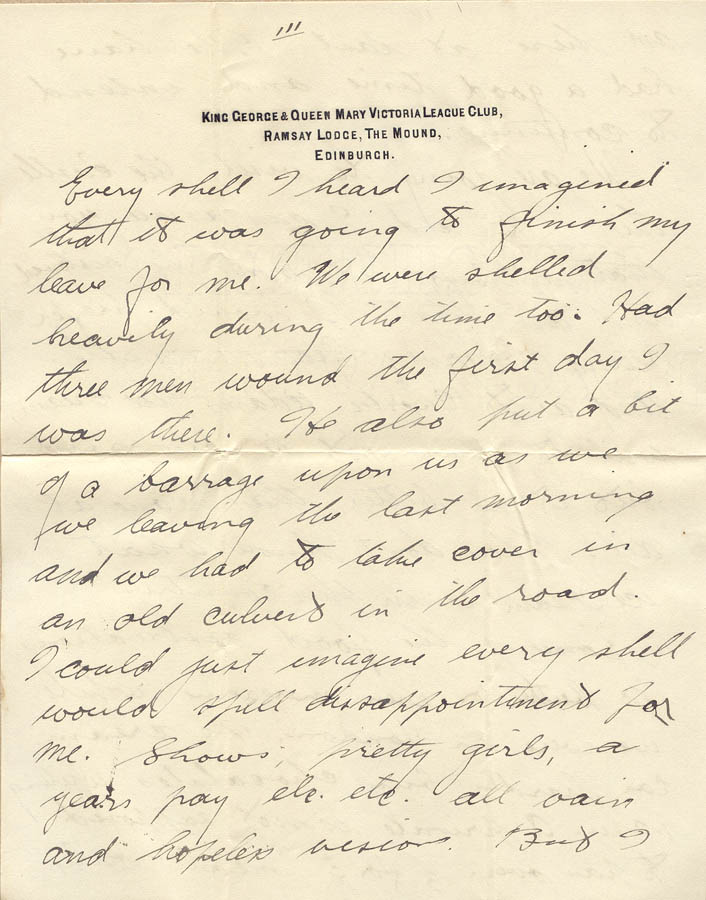 III
KING GEORGE & QUEEN MARY VICTORIA LEAGUE CLUB,
RAMSAY LODGE, THE MOUND,
EDINBURGH.
Every shell I heard I imagined
that it was going to finish my
leave for me. We were shelled
heavily during the time too. Had
three men wound the first day I
was there. He also put a bit
of a barrage upon us as we
we leaving the last morning
and we had to take cover in
an old culvert in the road.
I could just imagine every shell
would spell dissappointment for
me. Shows, pretty girls, a
years pay etc. etc. all vain
and hopeless visions. But I